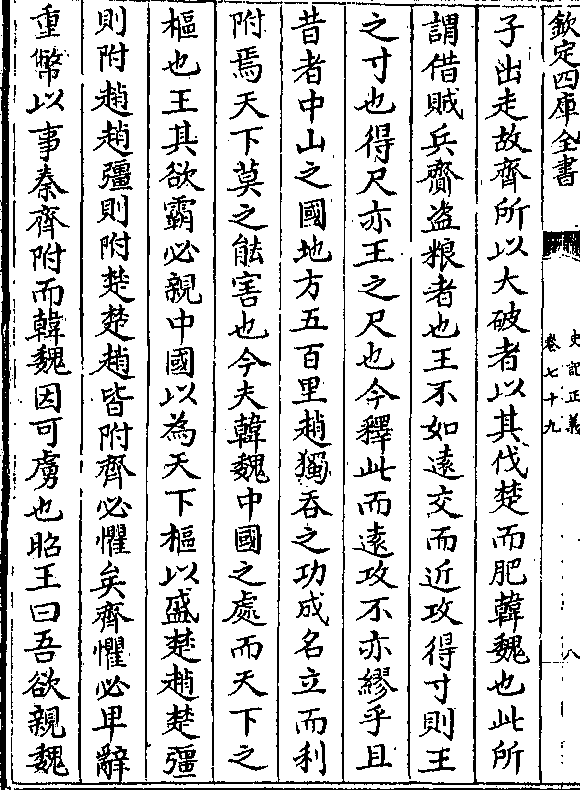 欽定四庫全書
史記正義
卷七十九
八
子出走故齊所以大破者以其伐楚而肥韓魏也此所
謂借賊兵齎盜粮者也王不如逺交而近攻得寸則王
之寸也得尺亦王之尺也今釋此而逺攻不亦繆乎且
昔者中山之國地方五百里趙獨吞之功成名立而利
附焉天下莫之能害也今夫韓魏中國之處而天下之
樞也王其欲霸必親中國以為天下樞以威楚趙楚彊
則附趙趙彊則附楚楚趙皆附齊必懼矣齊懼必卑辭
重幣以事秦齊附而韓魏因可虜也昭王曰吾欲親魏